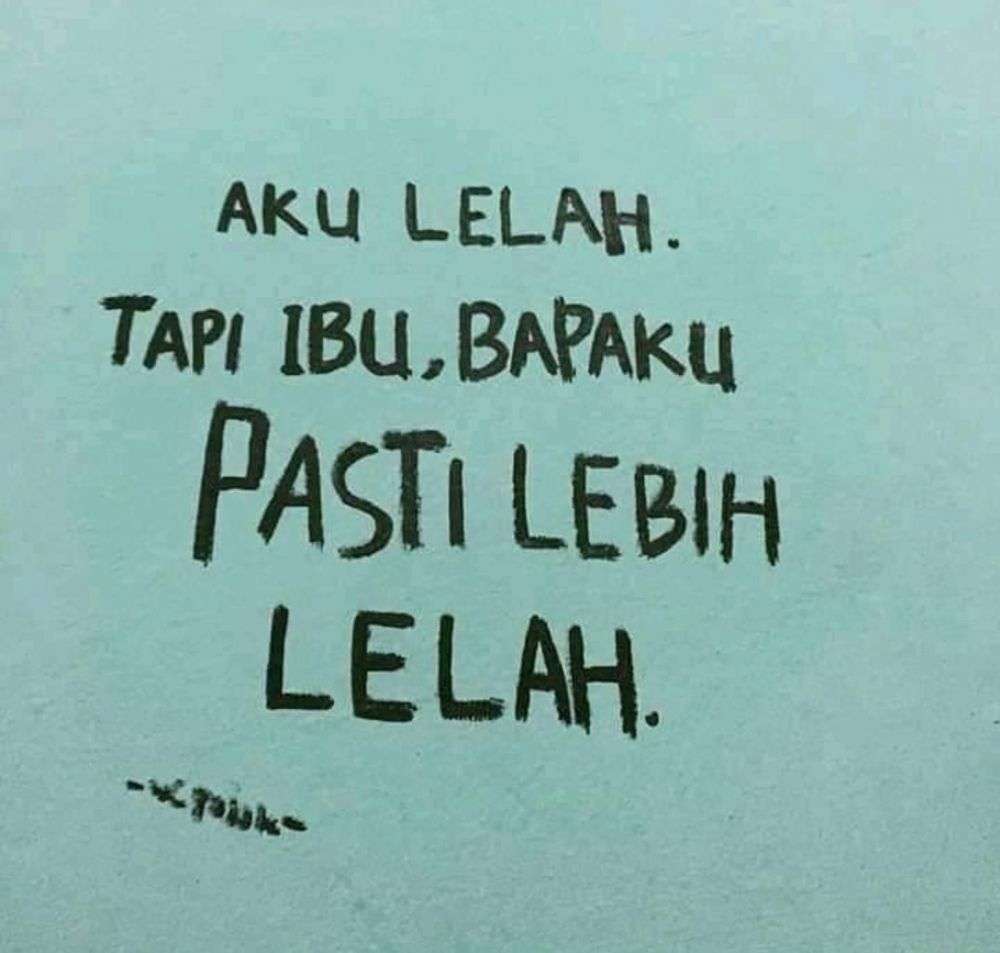 AKU LELAH.
TAPI IBU, BAPAKU
PASTI LEBIH
LELAH.